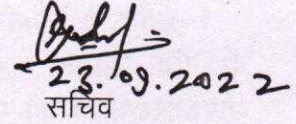 23.09.2022
सचिव